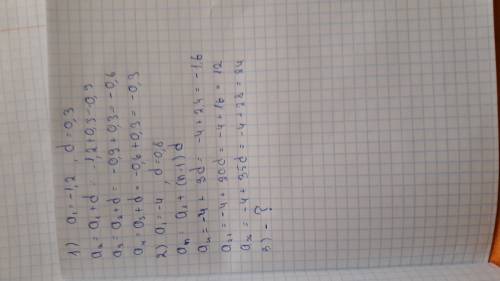 1) a₁ = -1,2 , d = 0,3
a₂ = a₁ + d = -1,2 + 0,3 = -0,9
a₃ = a₂ + d = -0,9 + 0,3 = -0,6
a₄ = a₃ + d = -0,6 + 0,3 = -0,3
2) a₁ = -4 , d = 0,8
aₙ = a₁ + (n-1) d
a₄ = -4 + 3d = -4 + 2,4 = -1,6
a₂₁ = -4 + 20d = -4 + 16 = 12
a₃₆ = -4 + 35d = -4 + 28 = 24
3) - ?